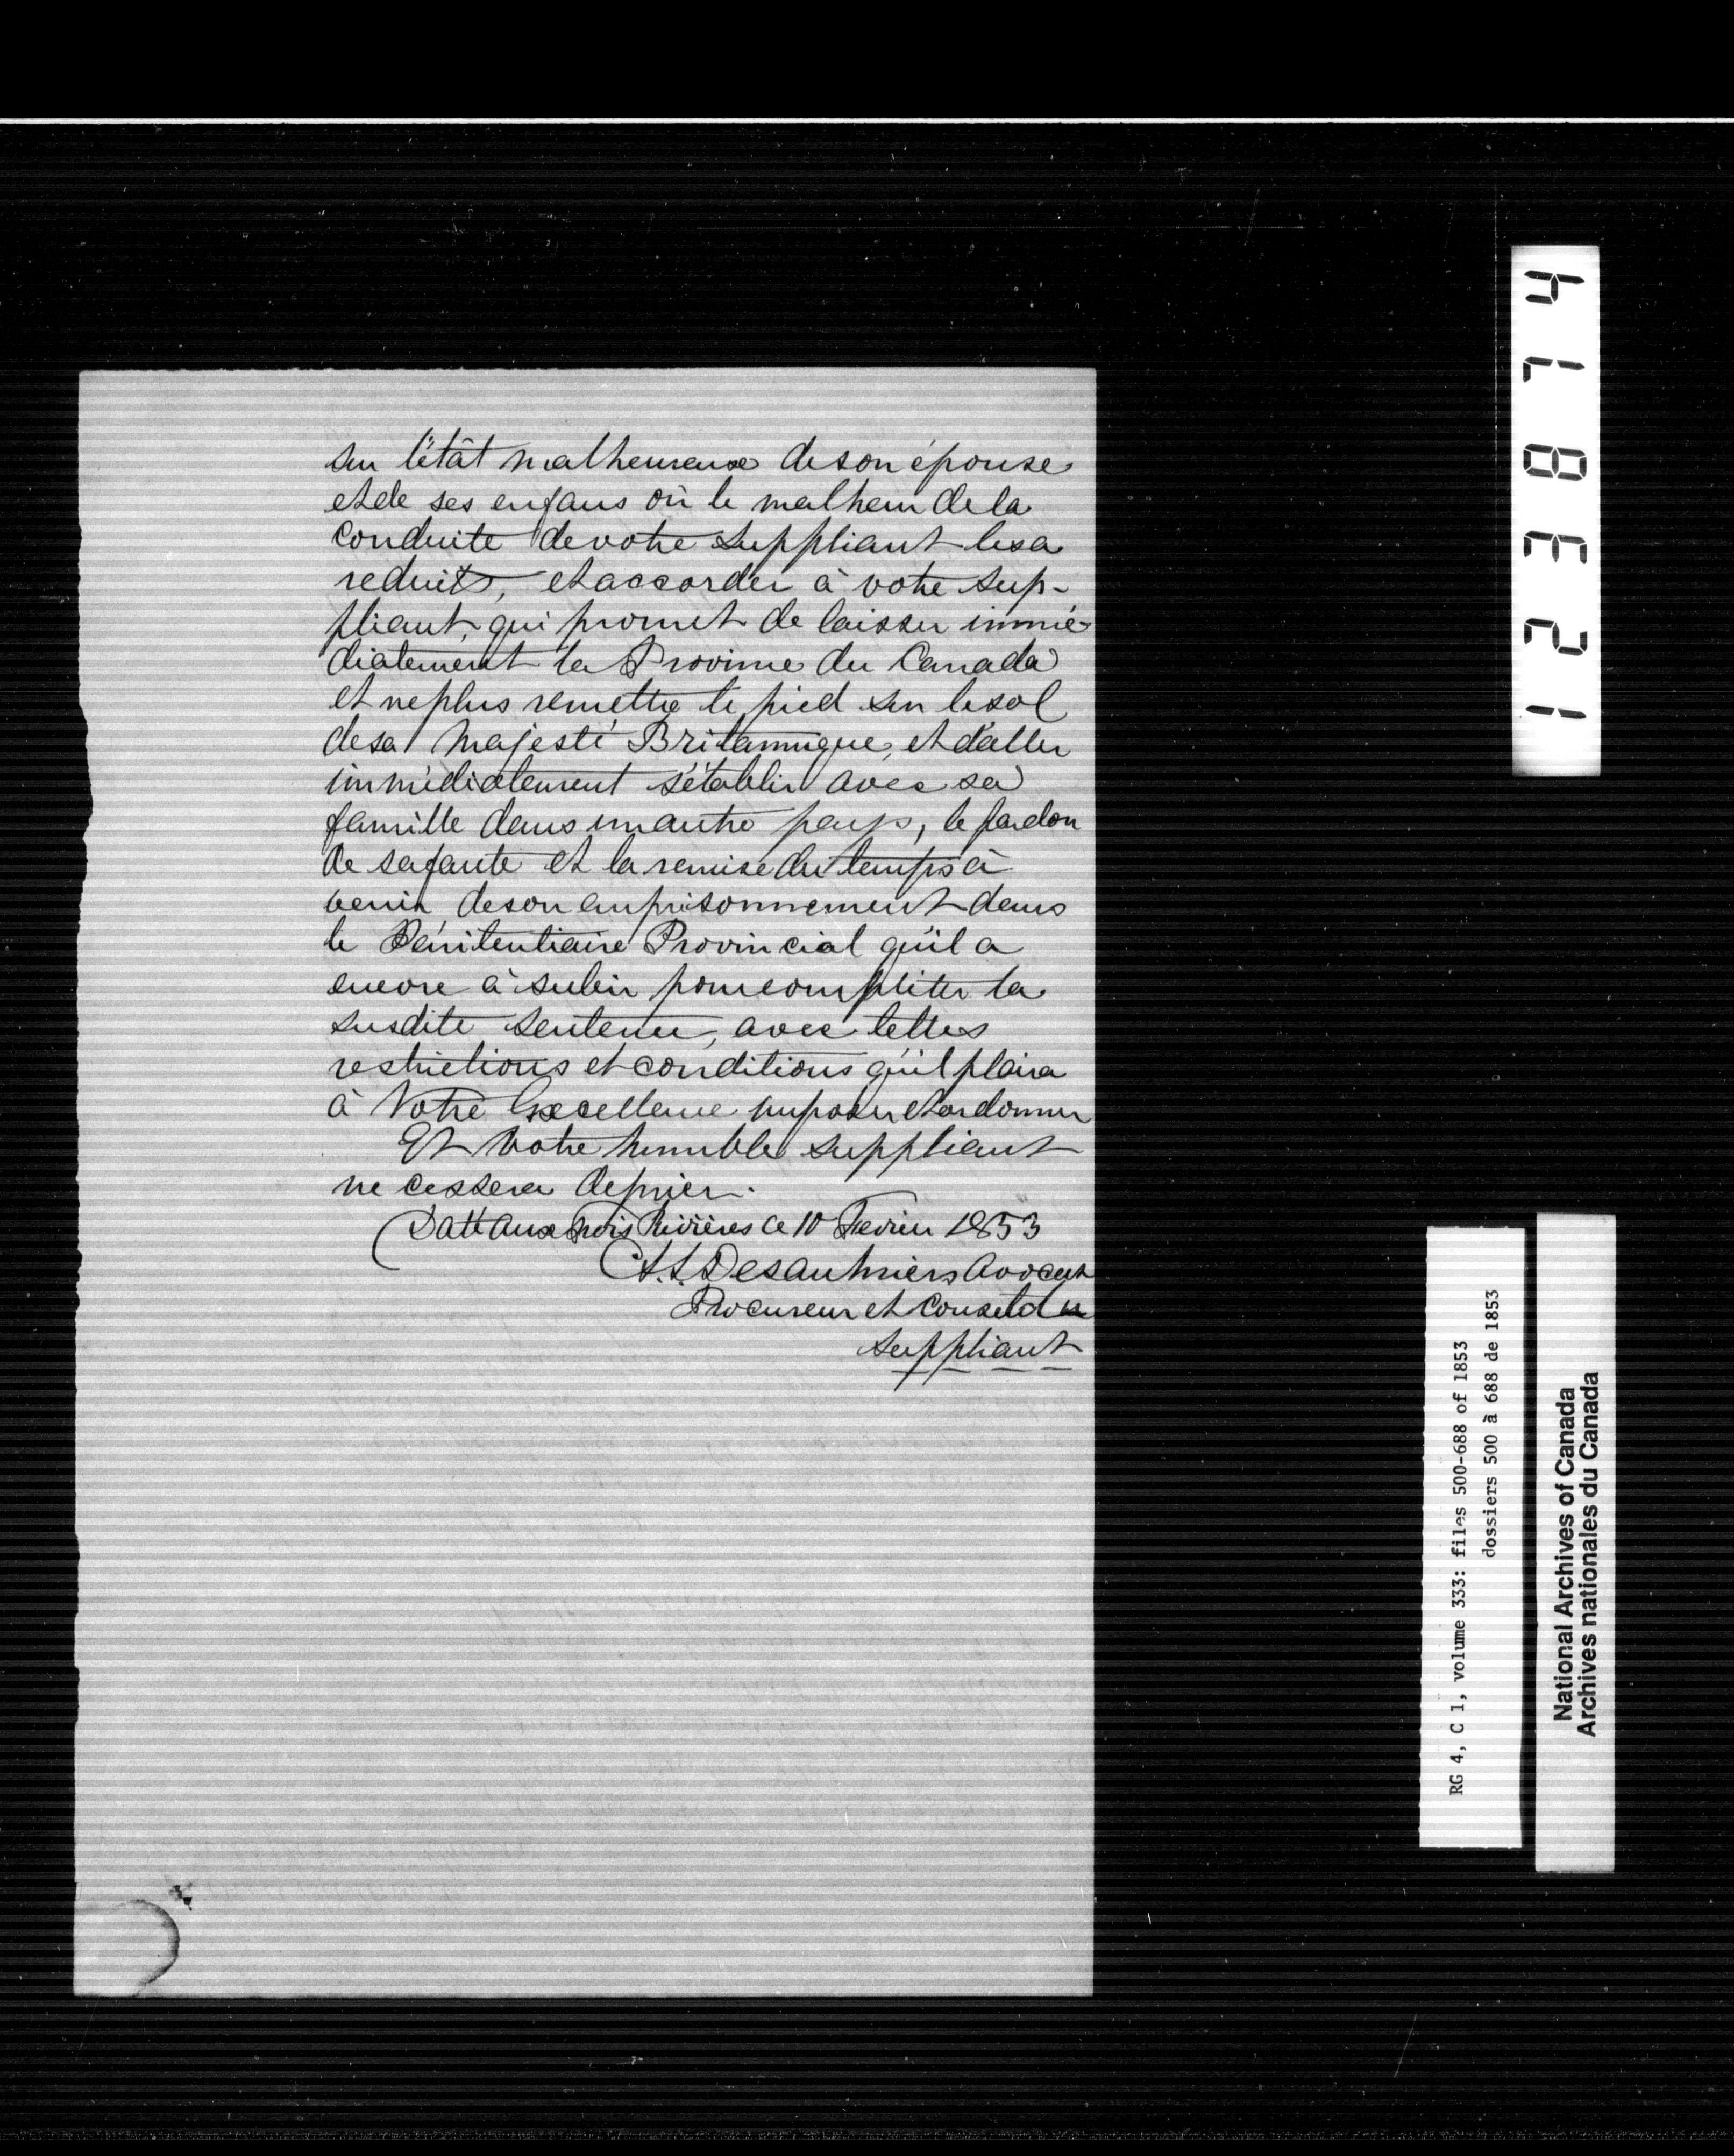 sur l'état malheureux de son épouse
et de ses enfans où le malheur de la
conduite de votre suppliant les a
reduits, et accorder à votre sup-
pliant, qui promet de laisser immé-
diatement la Province du Canada
et ne plus remettre le pied sur le sol
de sa Majesté Britannique, et d'aller
immédiatement s'établir avec sa
famille dans un autre pays, le pardon
de sa faute et la remise du temps à
venir de son emprisonnement dans
le Pénitentiaire Provincial qu'il a
encore à subir pour compléter la
susdite sentence, avec telles
restrictions et conditions qu'il plaira
à Votre Excellence imposer et ordonner
Et Votre humble suppliant
ne cessera de prier.
Datté aux Trois Rivières ce 10 Fevrier 1853
A.L. Desaulniers Avocat
Procureur et Conseil du
suppliant
123874
RG 4, C 1, volume 333: files 500-688 of 1853
dossiers 500 à 688 de 1853
National Archives of Canada
Archives nationales du Canada